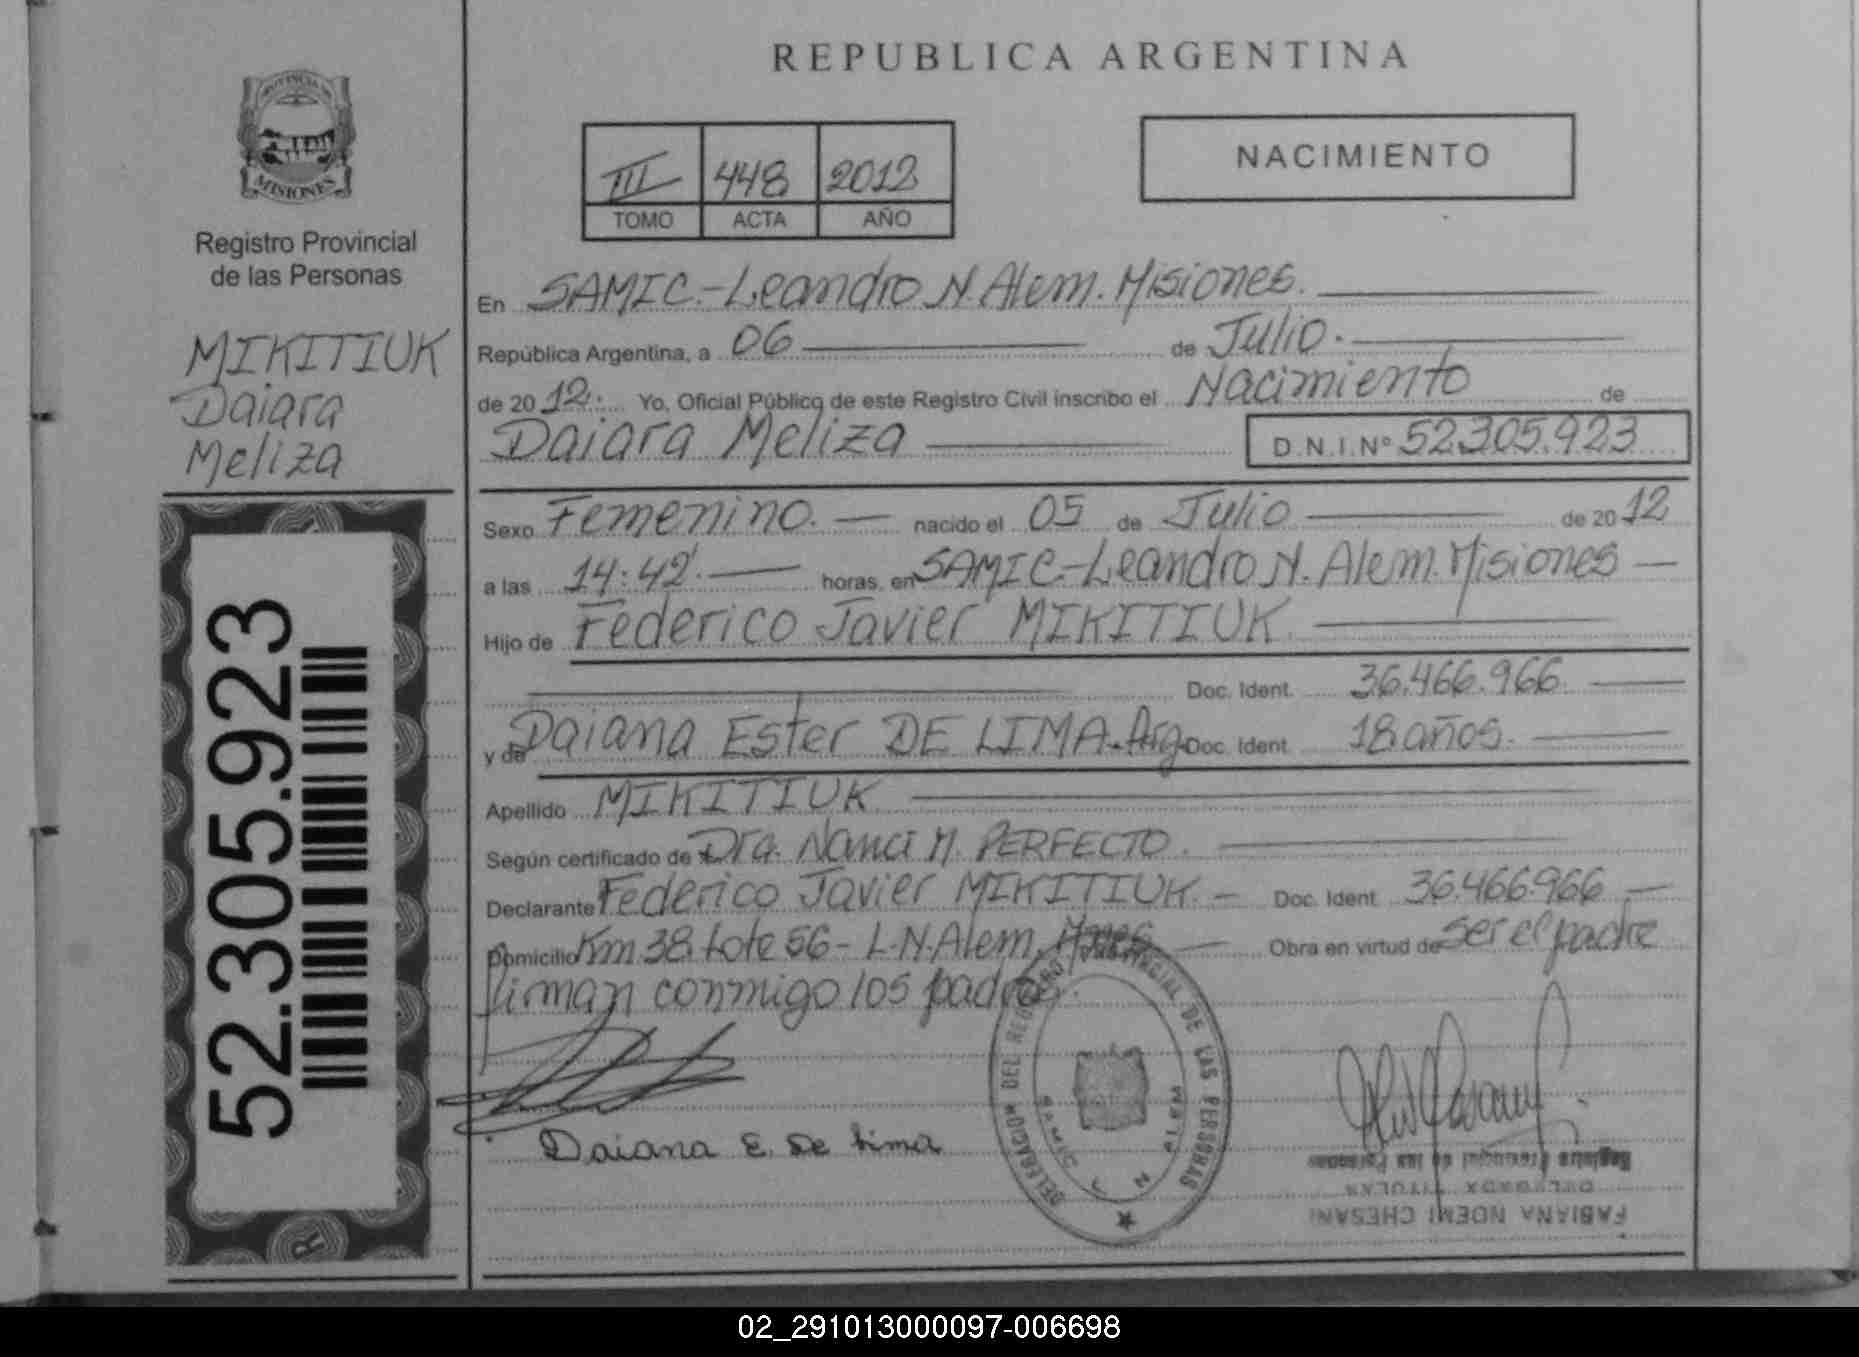 REPUBLICA ARGENTINA
PROVINCIA DE
MISIONES
Registro Provincial
de las Personas
MIKITIUK
Daiara
Meliza
52.305.923
R
III 448 2012
TOMO ACTA AÑO
NACIMIENTO
En SAMIC.-Leandro N. Alem. Misiones.
República Argentina, a 06 de Julio.
de 20 12. Yo, Oficial Público de este Registro Civil inscribo el Nacimiento de
Daiara Meliza D.N.I.Nº 52.305.923
Sexo Femenino. nacido el 05 de Julio de 20 12
a las 14:42. horas, en SAMIC.-Leandro N. Alem. Misiones
Hijo de Federico Javier MIKITIUK.
Doc. Ident. 36.466.966
y de Daiana Ester DE LIMA.-Arg. Doc. Ident. 18 años.
Apellido MIKITIUK
Según certificado de Dra. Nanci M. PERFECTO.
Declarante Federico Javier MIKITIUK.- Doc. Ident. 36.466.966
Domicilio Km 38. Lote 56- L.N.Alem. Obra en virtud de ser el padre
firman conmigo los padres.
Daiana E. De Lima
DELEGACION DEL REGISTRO PROVINCIAL DE LAS PERSONAS
SAMIC
FABIANA NOEMI CHESANI
DELEGADA TITULAR
Registro Provincial de las Personas
02_291013000097-006698